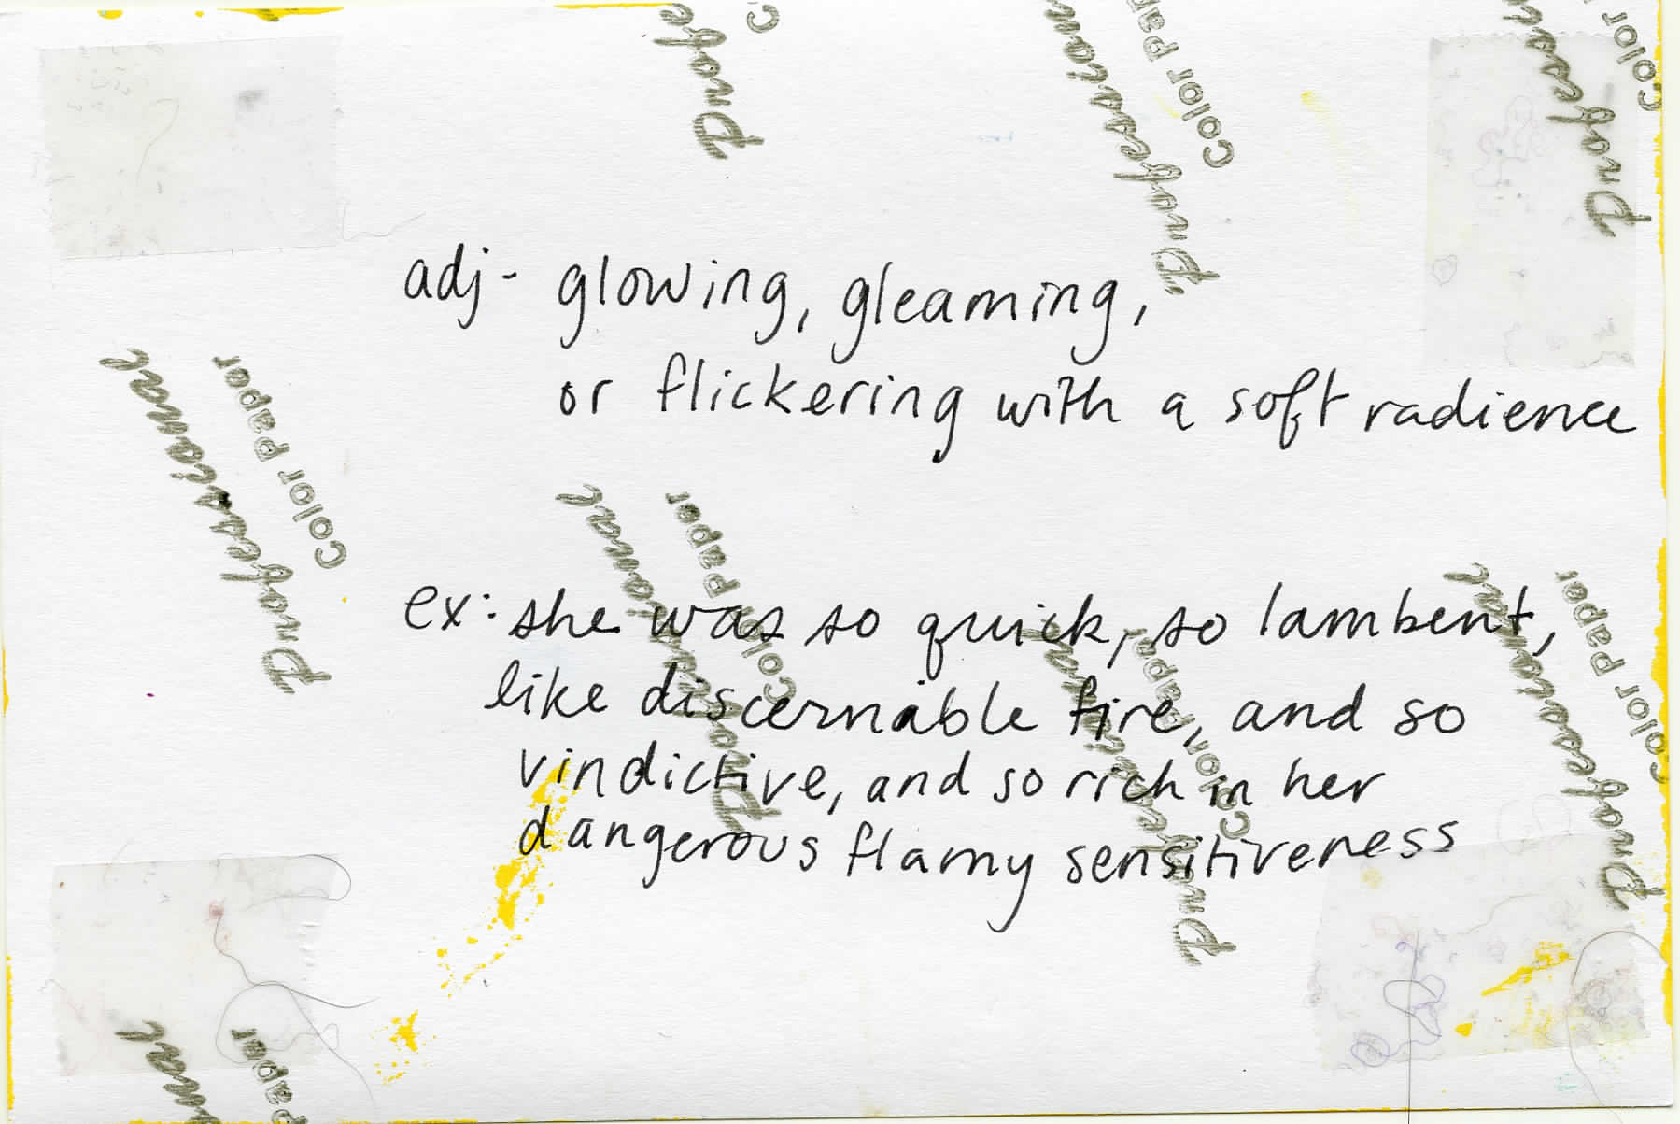 adj- glowing, gleaming,
or flickering with a soft radience
ex: she was so quick, so lambent,
like discernable fire, and so
vindictive, and so rich in her
dangerous flamy sensitiveness
Professional
Color Paper
Professional
Color Paper
Professional
Color Paper
Professional
Color Paper
Professional
Color Paper
Professional
Color Paper